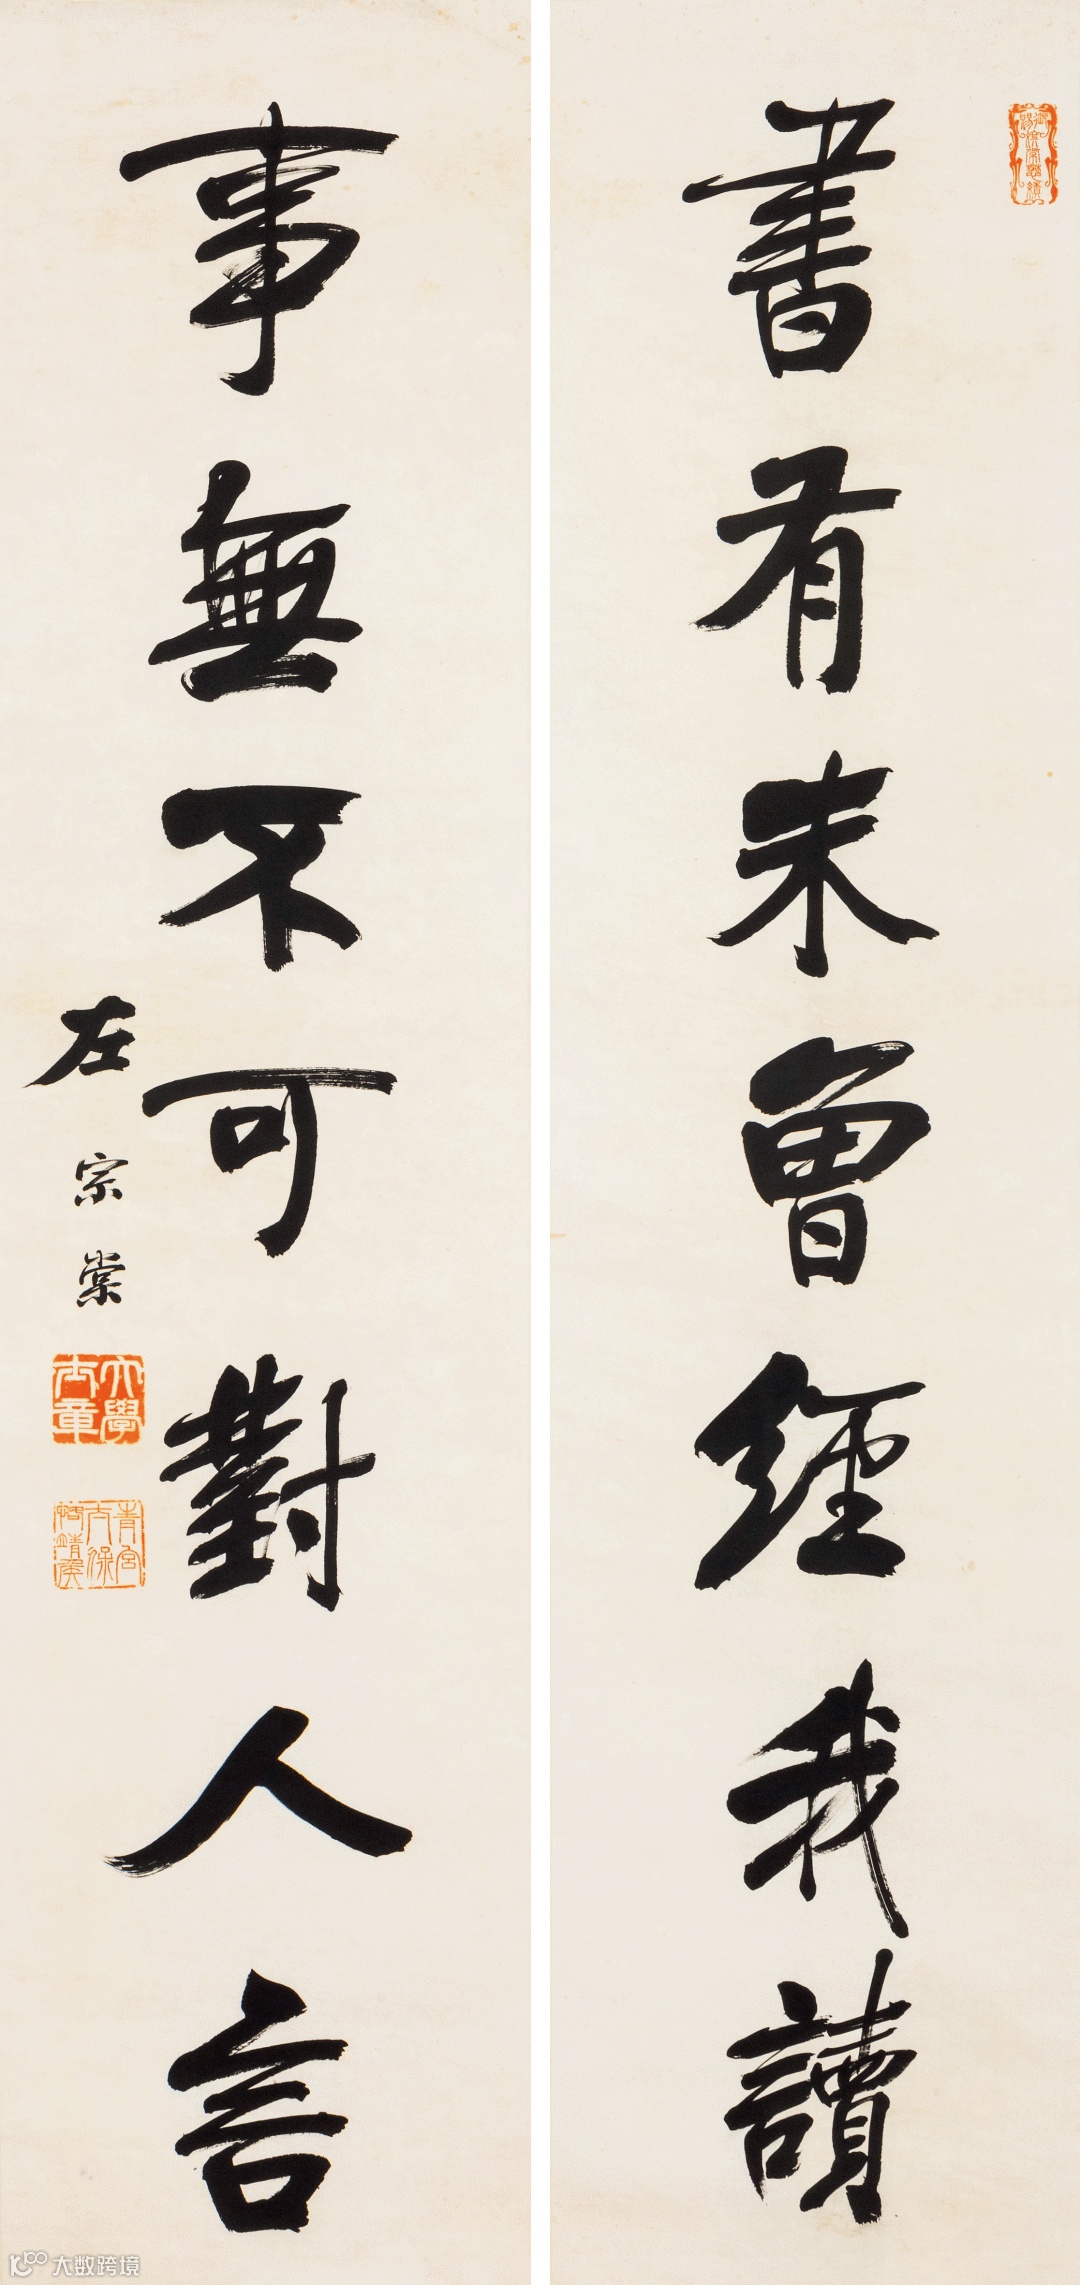 書有未曾經我讀
事無不可對人言
左宗棠
大學士章
青宮太保恪靖侯
大数跨境